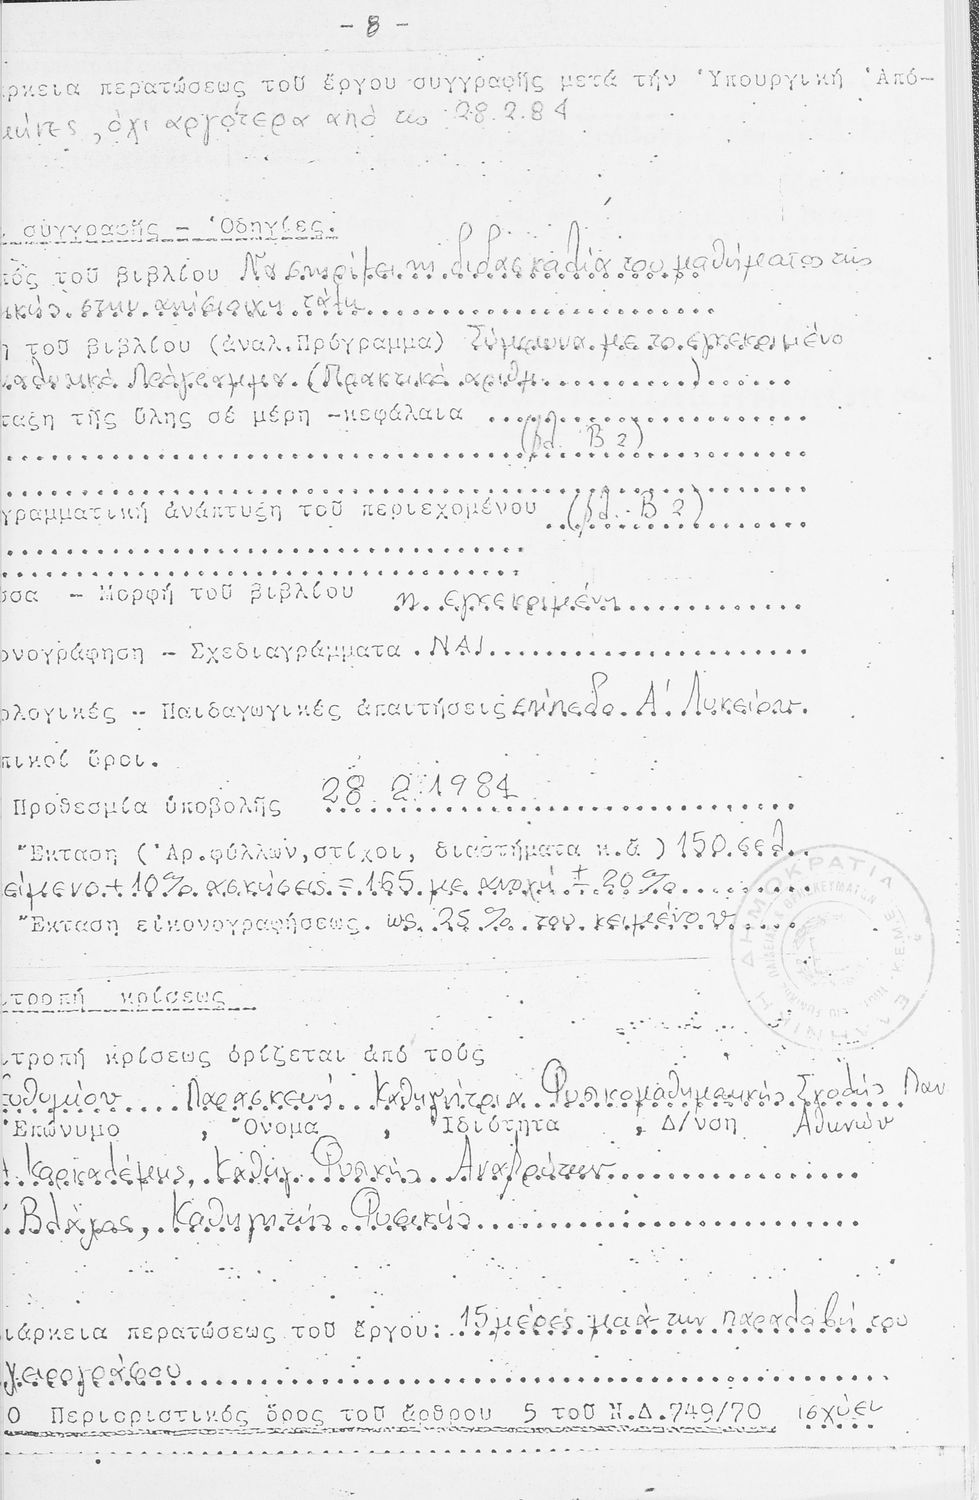 - 8 -
ρκεια περατώσεως τοῦ ἔργου συγγραφῆς μετά τήν Ὑπουργική Ἀπό-
, όχι αργότερα από τις 28.2.84
συγγραφῆς - Ὁδηγίες.
πός τοῦ βιβλίου Να στηρίξει τη διδασκαλία του μαθήματος της
ικής στην αντίστοιχη τάξη
η τοῦ βιβλίου (ἀναλ.Πρόγραμμα) Σύμφωνα με το εγκεκριμένο
Πρόγραμμα. (Πρακτικό αριθμ...........)
ταξη τῆς ὕλης σέ μέρη -κεφάλαια
(βλ. Β 2)
γραμματική ἀνάπτυξη τοῦ περιεχομένου (βλ. Β 2)
σσα - Μορφή τοῦ βιβλίου η εγκεκριμένη
ονογράφηση - Σχεδιαγράμματα . ΝΑΙ
ολογικές - Παιδαγωγικές ἀπαιτήσεις επίπεδο Α' Λυκείου.
πικοί ὅροι.
Προθεσμία ὑποβολῆς 28.2.1984
Ἔκταση (Ἀρ.φύλλων,στίχοι, διαστήματα κ.ἄ ) 150 σελ.
είμενο + 10% ασκήσεις = 165 με ανοχή ± 20%
Ἔκταση εἰκονογραφήσεως. ως 25% του κειμένου
ιτροπή κρίσεως
ιτροπή κρίσεως ὁρίζεται ἀπό τούς
Ευθυμίου Παρασκευή Καθηγήτρια Φυσικομαθηματικής Σχολής Παν
Ἐπώνυμο , Ὄνομα , Ἰδιότητα , Δ/νση Αθηνών
Καρκαλέμης, Καθηγ. Φυσικής
Βλάχος, Καθηγητής Φυσικής
ιάρκεια περατώσεως τοῦ ἔργου: 15 μέρες μετά την παραλαβή του
χειρογράφου
Ο Περιοριστικός ὅρος τοῦ ἄρθρου 5 τοῦ Ν.Δ.749/70 ισχύει
ΕΛΛΗΝΙΚΗ ΔΗΜΟΚΡΑΤΙΑ